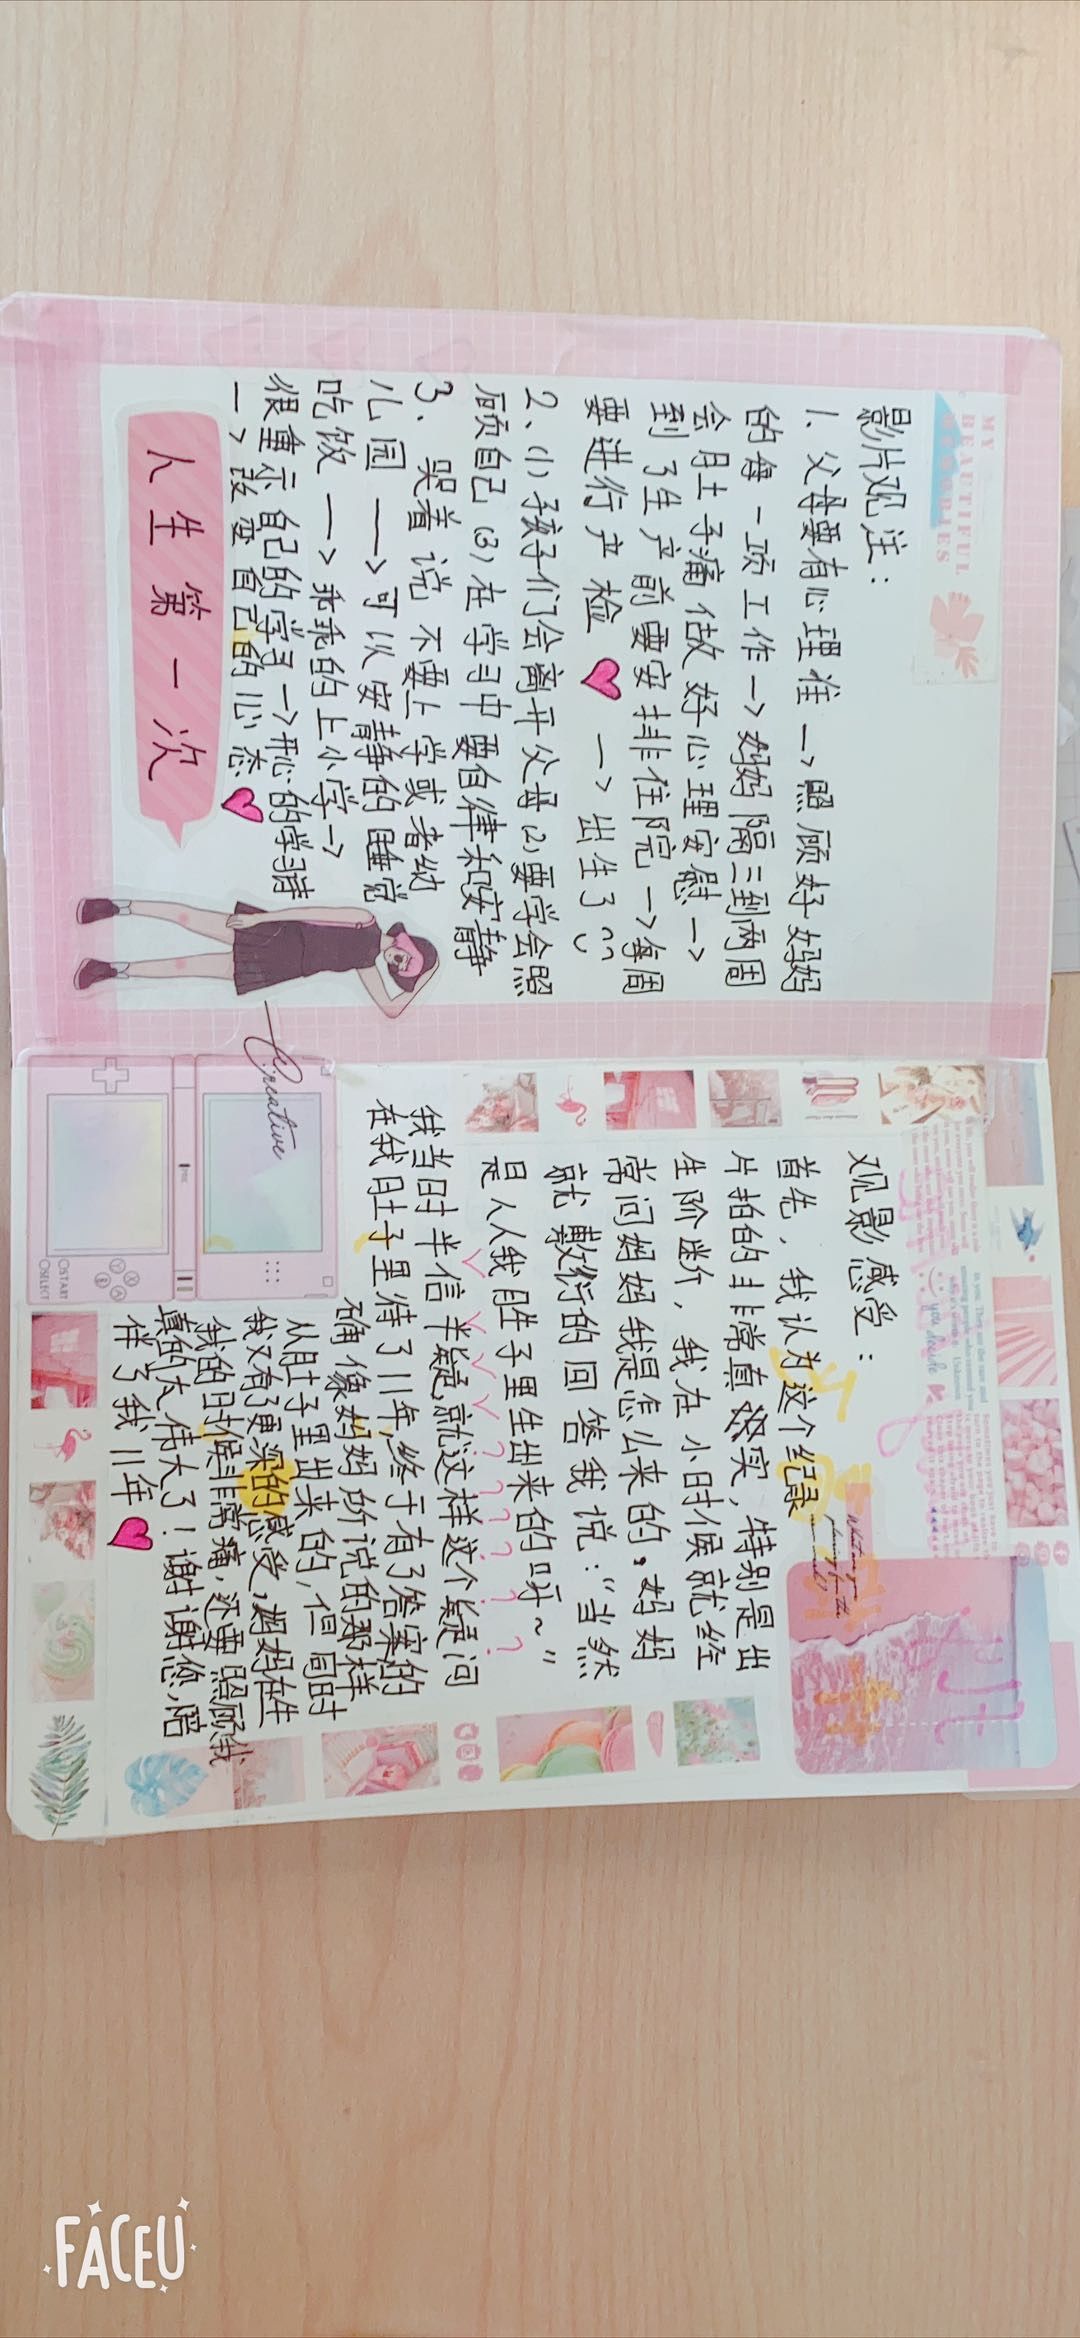 MY
BEAUTIFUL
MEMORIES
影片观注:
1. 父母要有心理准 —> 照顾好妈妈
的每一项工作 —> 妈妈隔三到两周
会肚子痛做好心理安慰 —>
到了生产前要安排住院 —> 每周
要进行产检 —> 出生了
2、(1)孩子们会离开父母(2)要学会照
顾自己(3)在学习中要自律和安静
3. 哭着说不要上学或者幼
儿园 —> 可以安静的睡觉
吃饭 —> 乖乖的上小学—>
很重示自己的学习 —>
—> 改变自己的心态
人生第一次
Creative
START
SELECT
观影感受:
首先,我认为这个纪录
片拍的非常真实,特别是出
生阶断,我在小时候就经
常问妈妈我是怎么来的,妈妈
就敷衍的回答我说:“当然
是从我肚子里生出来的呀~”
我当时半信半疑,就这样这个疑问
在我肚子里待了11年,终于有了答案的
确像妈妈所说的那样
从肚子里出来的,但同时
我又有了更深的感受,妈妈在生
我的时候非常痛,还要照顾我
真的太伟大了!谢谢您,陪
伴了我11年
you decide
FACEU